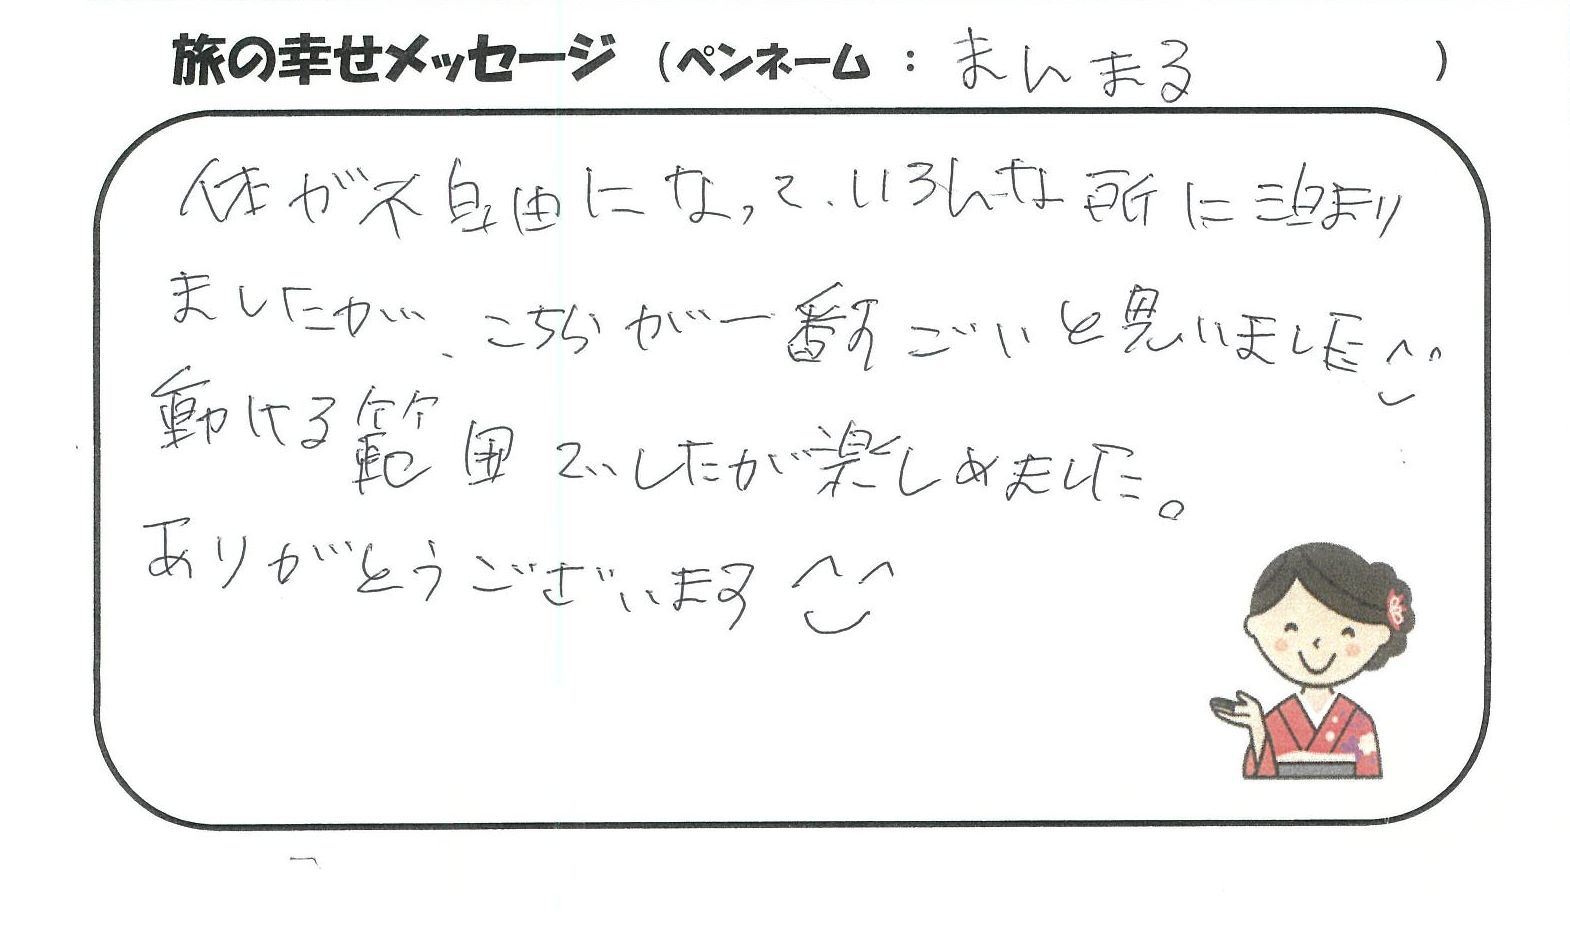 旅の幸せメッセージ (ペンネーム : まんまる )
体が不自由になって、いろんな所に泊まり
ましたが、こちらが一番すごいと思いました^^
動ける範囲でしたが楽しめました。
ありがとうございます^^